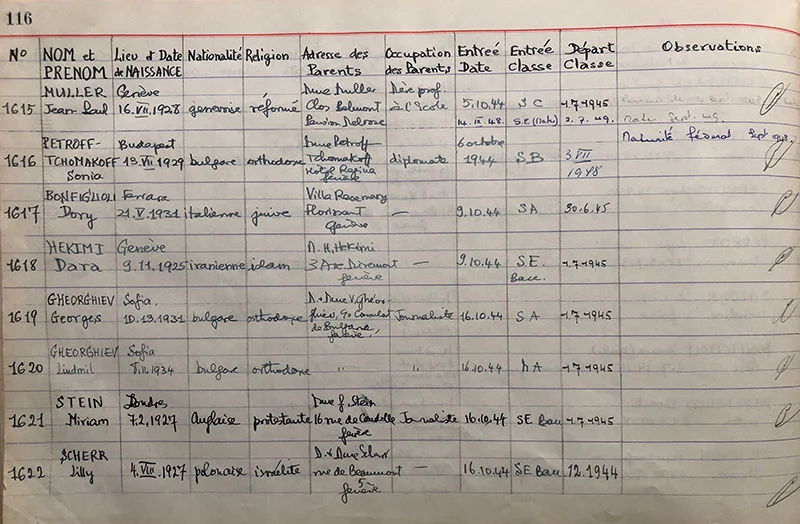 116
No NOM et PRENOM Lieu et Date de NAISSANCE Nationalité Religion Adresse des Parents Occupation des Parents Entrée Date Entrée Classe Départ Classe Observations
MULLER Genève Mme Muller Père prof.
1615 Jean-Paul 16.VII.1928 genevoise réformé Clos Belmont à l'Ecole 5.10.44 S C 1.7.1945
14.IX.48. S.E (Mate) 2.7.49. Mate Sept. 49.
PETROFF- Budapest Mme Petroff 6 octobre Maturité fédéral Sept 1948.
1616 TCHOMAKOFF 19.VII.1929 bulgare orthodoxe Tchomakoff diplomate 1944 S B 3 VII
Sonia Hotel Regina Genève 1948
BONFIGLIOLI Ferrara Villa Rosemary
1617 Dory 21.V.1931 italienne juive Florissant — 9.10.44 S A 30.6.45
Genève
HEKIMI Genève M. H. Hekimi
1618 Dara 9.11.1925 iranienne islam 3 — 9.10.44 S.E. 1.7.1945
Genève Bacc.
GHEORGHIEV Sofia. D. & Mme V. Ghéor-
1619 Georges bulgare orthodoxe Consulat Journaliste 16.10.44 S A 1.7.1945
de Bulgarie, Genève.
GHEORGHIEV Sofia
1620 Liudmil 1934 bulgare orthodoxe " " 16.10.44 M A 1.7.1945
STEIN Londres Mme J. Stein
1621 Miriam 7.2.1927 Anglaise protestante 16 rue de Candolle Journaliste 16.10.44 SE Bacc 1.7.1945
Genève
SCHERR D. & Mme Scherr
1622 Lilly 4.VIII.1927 polonaise israélite rue de Beaumont — 16.10.44 SE Bacc 12.1944
5 Genève